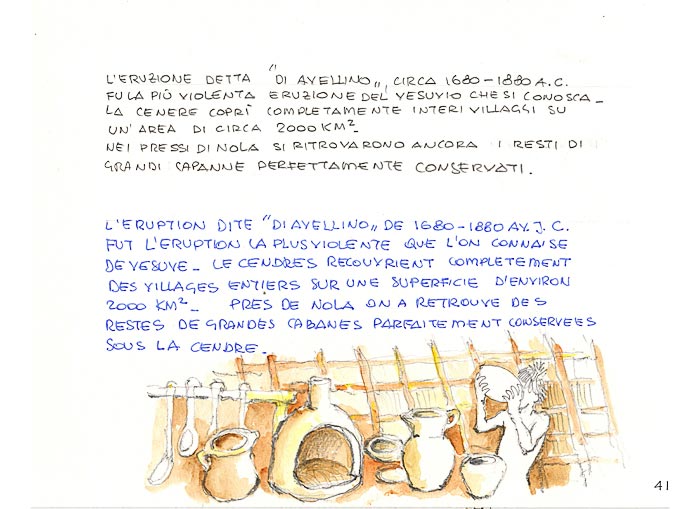 L'ERUZIONE DETTA "DI AVELLINO„, CIRCA 1680-1880 A.C.
FU LA PIÙ VIOLENTA ERUZIONE DEL VESUVIO CHE SI CONOSCA-
LA CENERE COPRÌ COMPLETAMENTE INTERI VILLAGGI SU
UN'AREA DI CIRCA 2000 KM²-
NEI PRESSI DI NOLA SI RITROVARONO ANCORA I RESTI DI
GRANDI CAPANNE PERFETTAMENTE CONSERVATI.
L'ERUPTION DITE "DI AVELLINO„ DE 1680-1880 AV. J. C.
FUT L'ERUPTION LA PLUS VIOLENTE QUE L'ON CONNAISE
DE VESUVE- LE CENDRES RECOUVRIENT COMPLETEMENT
DES VILLAGES ENTIERS SUR UNE SUPERFICIE D'ENVIRON
2000 KM²- PRES DE NOLA ON A RETROUVE DES
RESTES DE GRANDES CABANES PARFAITEMENT CONSERVEES
SOUS LA CENDRE.
41